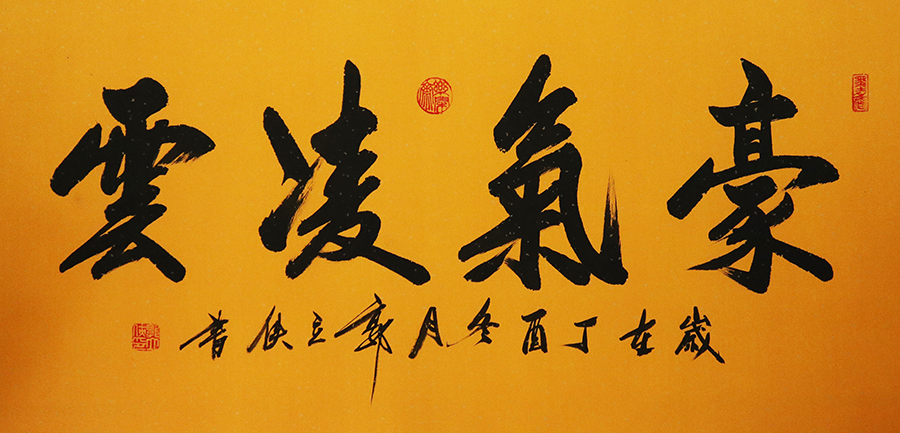 豪氣凌雲
歲在丁酉冬月郭立俠書